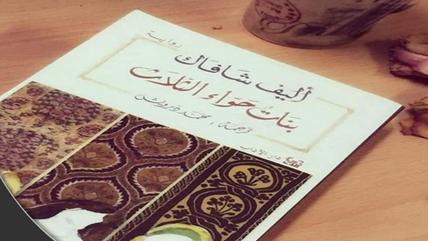 رواية
أليف شافاك
بنات حواء الثلاث
ترجمة: محمد درويش
دار الآداب